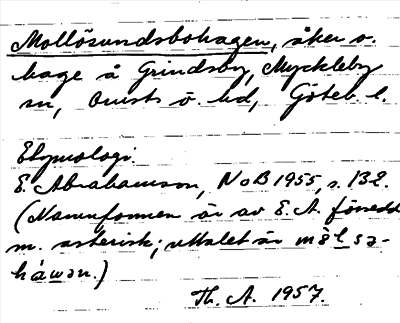 Mollösundsbohagen, åker o.
hage å Grindsby, Myckleby
sn, Orusts ö. hd, Göteb. l.
Etymologi.
E. Abrahamson, NoB 1955, s. 132.
(Namnformen är av E. A. försedd
m. asterisk; uttalet är
Th. A. 1957.